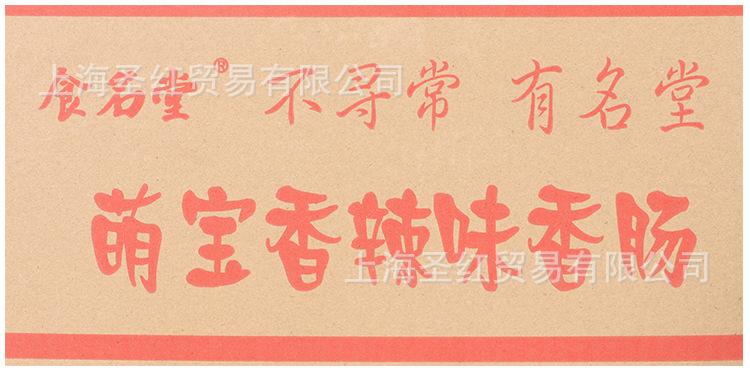 食名堂® 不寻常 有名堂
上海圣红贸易有限公司
萌宝香辣味香肠
上海圣红贸易有限公司